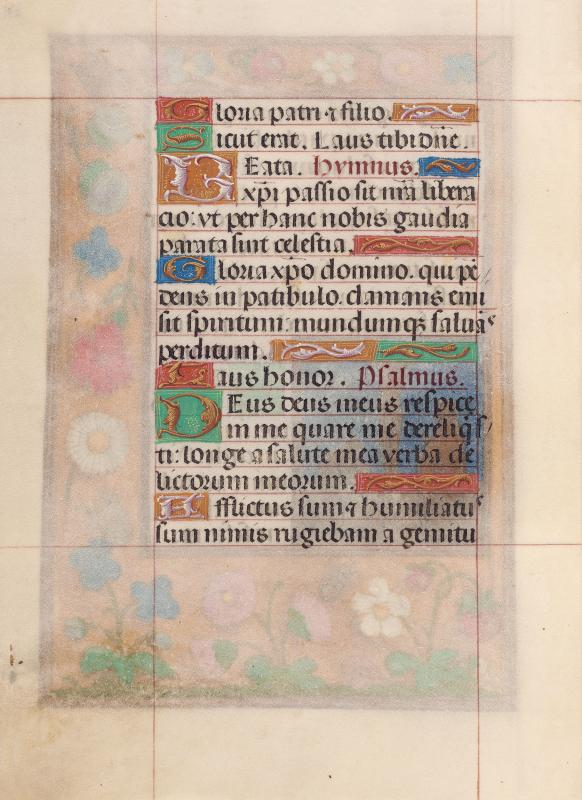 Gloria patri ⁊ filio.
Sicut erat. Laus tibi dn̄e.
BEata. Hymnus.
xp̄i passio sit nr̄a libera
cio: vt per hanc nobis gaudia
parata sint celestia.
Gloria xp̄o domino. qui pē
dens in patibulo. clamans emi
sit spiritum: mundumq; saluās
perditum.
Laus honor. Psalmus.
DEus deus meus respice
in me quare me dereliq̄s
ti: longe a salute mea verba de
lictorum meorum.
Afflictus sum ⁊ humiliatus
sum nimis rugiebam a gemitu